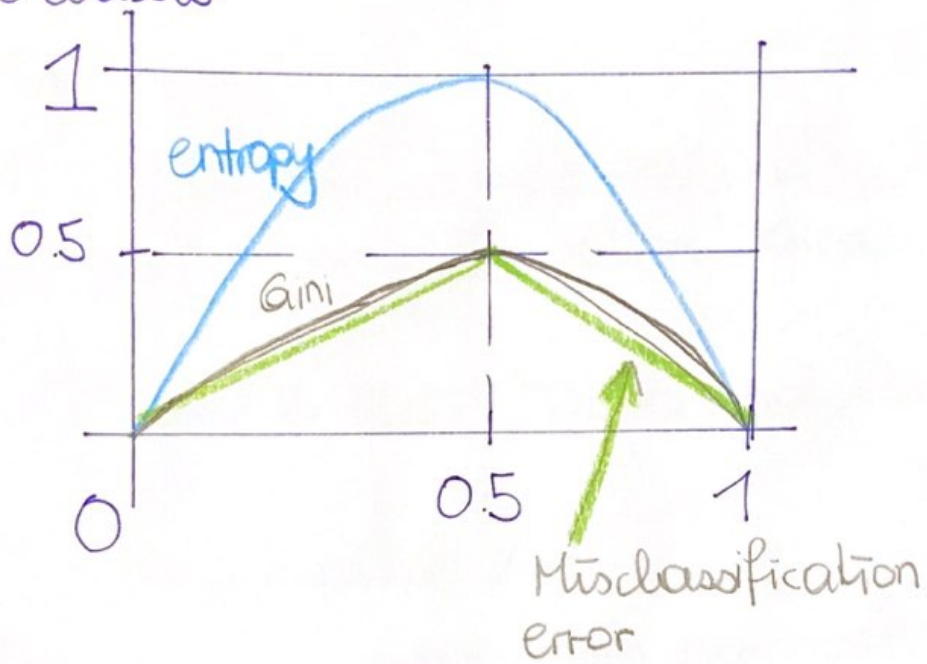 1
entropy
0.5
Gini
0
0.5
1
Misclassification
error